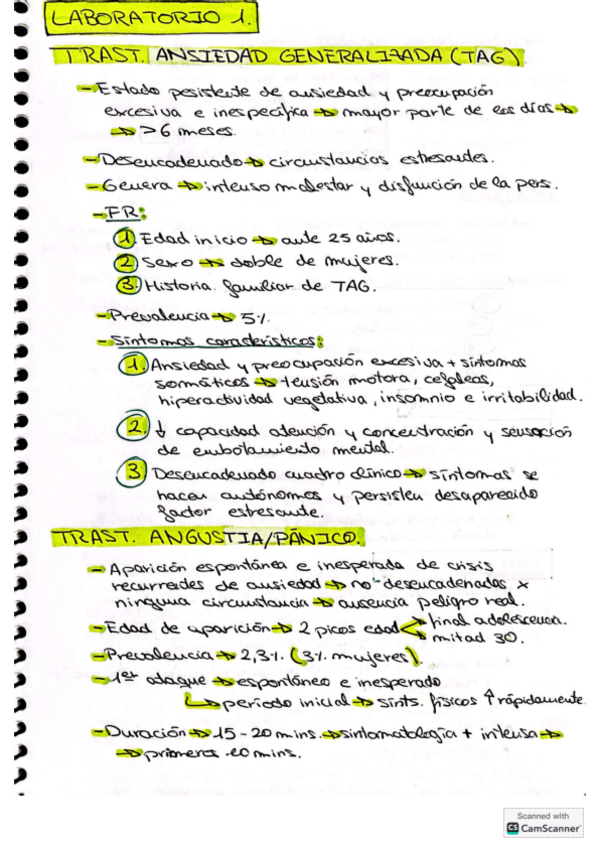 LABORATORIO 1.
TRAST. ANSIEDAD GENERALIZADA (TAG)
- Estado persistente de ansiedad y preocupación
excesiva e inespecífica → mayor parte de los días →
→ > 6 meses.
- Desencadenado → circunstancias estresantes.
- Genera → intenso malestar y disfunción de la pers.
- FR:
1. Edad inicio → ante 25 años.
2. Sexo → doble de mujeres.
3. Historia familiar de TAG.
- Prevalencia → 5%.
- Síntomas característicos:
1. Ansiedad y preocupación excesiva + síntomas
somáticos → tensión motora, cefaleas,
hiperactividad vegetativa, insomnio e irritabilidad.
2. ↓ capacidad atención y concentración y sensación
de embotamiento mental.
3. Desencadenado cuadro clínico → síntomas se
hacen autónomos y persisten desaparecido
factor estresante.
TRAST. ANGUSTIA/PÁNICO.
- Aparición espontánea e inesperada de crisis
recurrentes de ansiedad → no desencadenadas x
ninguna circunstancia → ausencia peligro real.
- Edad de aparición → 2 picos edad < final adolescencia.
mitad 30.
- Prevalencia → 2,3% (3% mujeres).
- 1er ataque → espontáneo e inesperado
↳ periodo inicial → sínts. físicos ↑ rápidamente.
- Duración → 15-20 mins. → sintomatología + intensa →
→ primeros 10 mins.
Scanned with
CS CamScanner